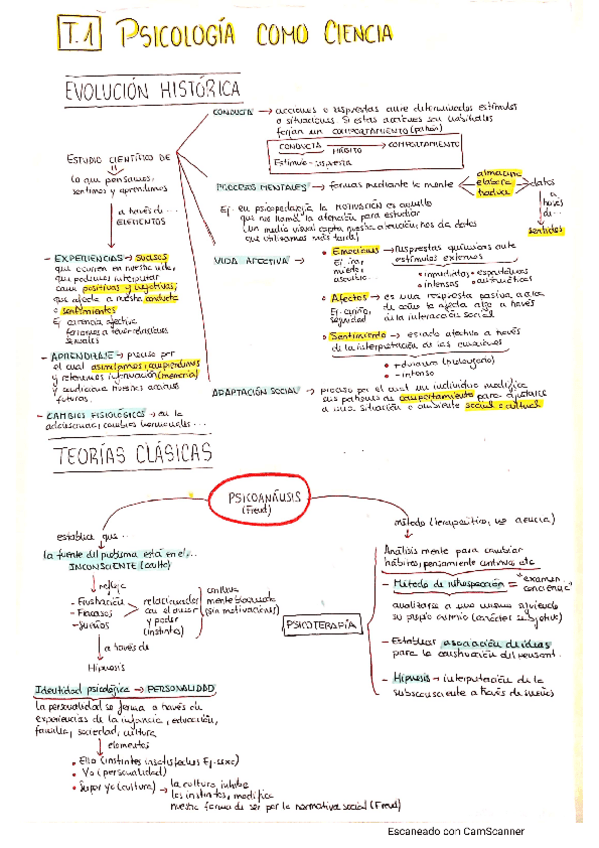 T.1 PSICOLOGÍA COMO CIENCIA
EVOLUCIÓN HISTÓRICA
ESTUDIO CIENTÍFICO DE
lo que pensamos,
sentimos y aprendemos
a través de...
ELEMENTOS
- EXPERIENCIAS → sucesos
que ocurren en nuestra vida,
que podemos interpretar
como positivas y negativas;
que afecta a nuestra conducta
o sentimientos
Ej. carencia afectiva
sexuales
- APRENDIZAJE → proceso por
el cual asimilamos, comprendemos
y retenemos información (memoria)
y nuestras acciones
futuras.
- CAMBIOS FISIOLÓGICOS → en la
adolescencia; cambios hormonales...
CONDUCTA → acciones o respuestas ante determinados estímulos
o situaciones. Si estas acciones son habituales
forjan un COMPORTAMIENTO (patrón)
CONDUCTA → COMPORTAMIENTO
HÁBITO
Estímulo - respuesta
PROCESOS MENTALES → formas mediante la mente
almacena
elabora
traduce
datos
a
través
de...
sentidos
Ej. en psicopedagogía la MOTIVACIÓN es aquello
que nos llama la atención para estudiar
un medio visual capta nuestra atención, nos da datos
que utilizamos más tarde)
VIDA AFECTIVA
• Emociones → respuestas químicas ante
estímulos externos
Ej. ira,
muerte,
• inmediatas • espontáneas
• intensas • automáticas
• Afectos → es una respuesta pasiva acerca
de cómo te afecta algo a través
de la interacción social
Ej. cariño,
seguridad
• Sentimiento → estado afectivo a través
de la interpretación de las emociones
• + duradero (prolongado)
• - intenso
ADAPTACIÓN SOCIAL → proceso por el cual un individuo modifica
sus patrones de comportamiento para ajustarse
a una situación o ambiente social o cultural
TEORÍAS CLÁSICAS
PSICOANÁLISIS
(Freud)
establece que...
la fuente del problema está en el...
INCONSCIENTE (oculto)
refleja
- Frustración
- Fracasos
- Sueños
relacionados
con el amor
y poder
(instintos)
conlleva
mente bloqueada
(sin motivaciones)
a través de
Hipnosis
Identidad psicológica → PERSONALIDAD
la personalidad se forma a través de
experiencias de la infancia, educación,
familia, sociedad, cultura
elementos
• Ello (instintos insatisfechos Ej. sexo)
• Yo (personalidad)
• Super yo (cultura) → la cultura, inhibe
los instintos, modifica
nuestra forma de ser por la normativa social (Freud)
PSICOTERAPIA
método (terapéutico, no ciencia)
Análisis mente para cambiar
hábitos, pensamiento continuo, etc
- Método de introspección = "examen
conciencia"
analizarse a uno mismo siguiendo
su propio camino (carácter subjetivo)
- Establecer asociación de ideas
para la construcción del pensam.
- Hipnosis → interpretación de la
subsconsciente a través de sueños
Escaneado con CamScanner